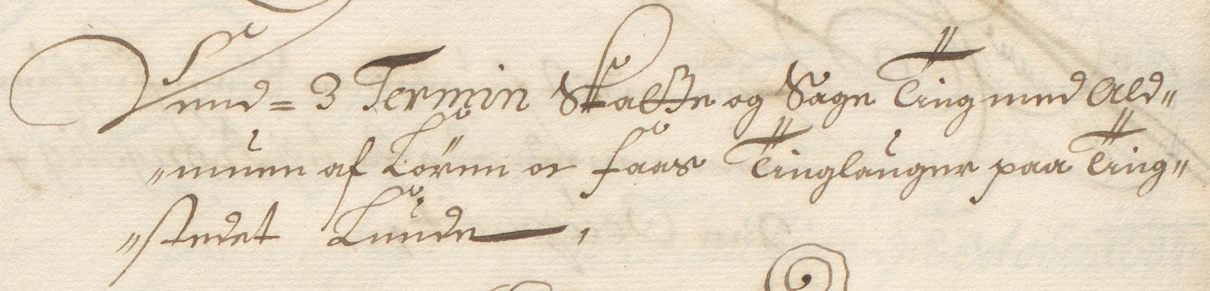 Holt 3 Termin Skatte og Sage Ting med Ald-
muen af Lören oc Faas Tinglauger paa Ting-
stedet Lunde